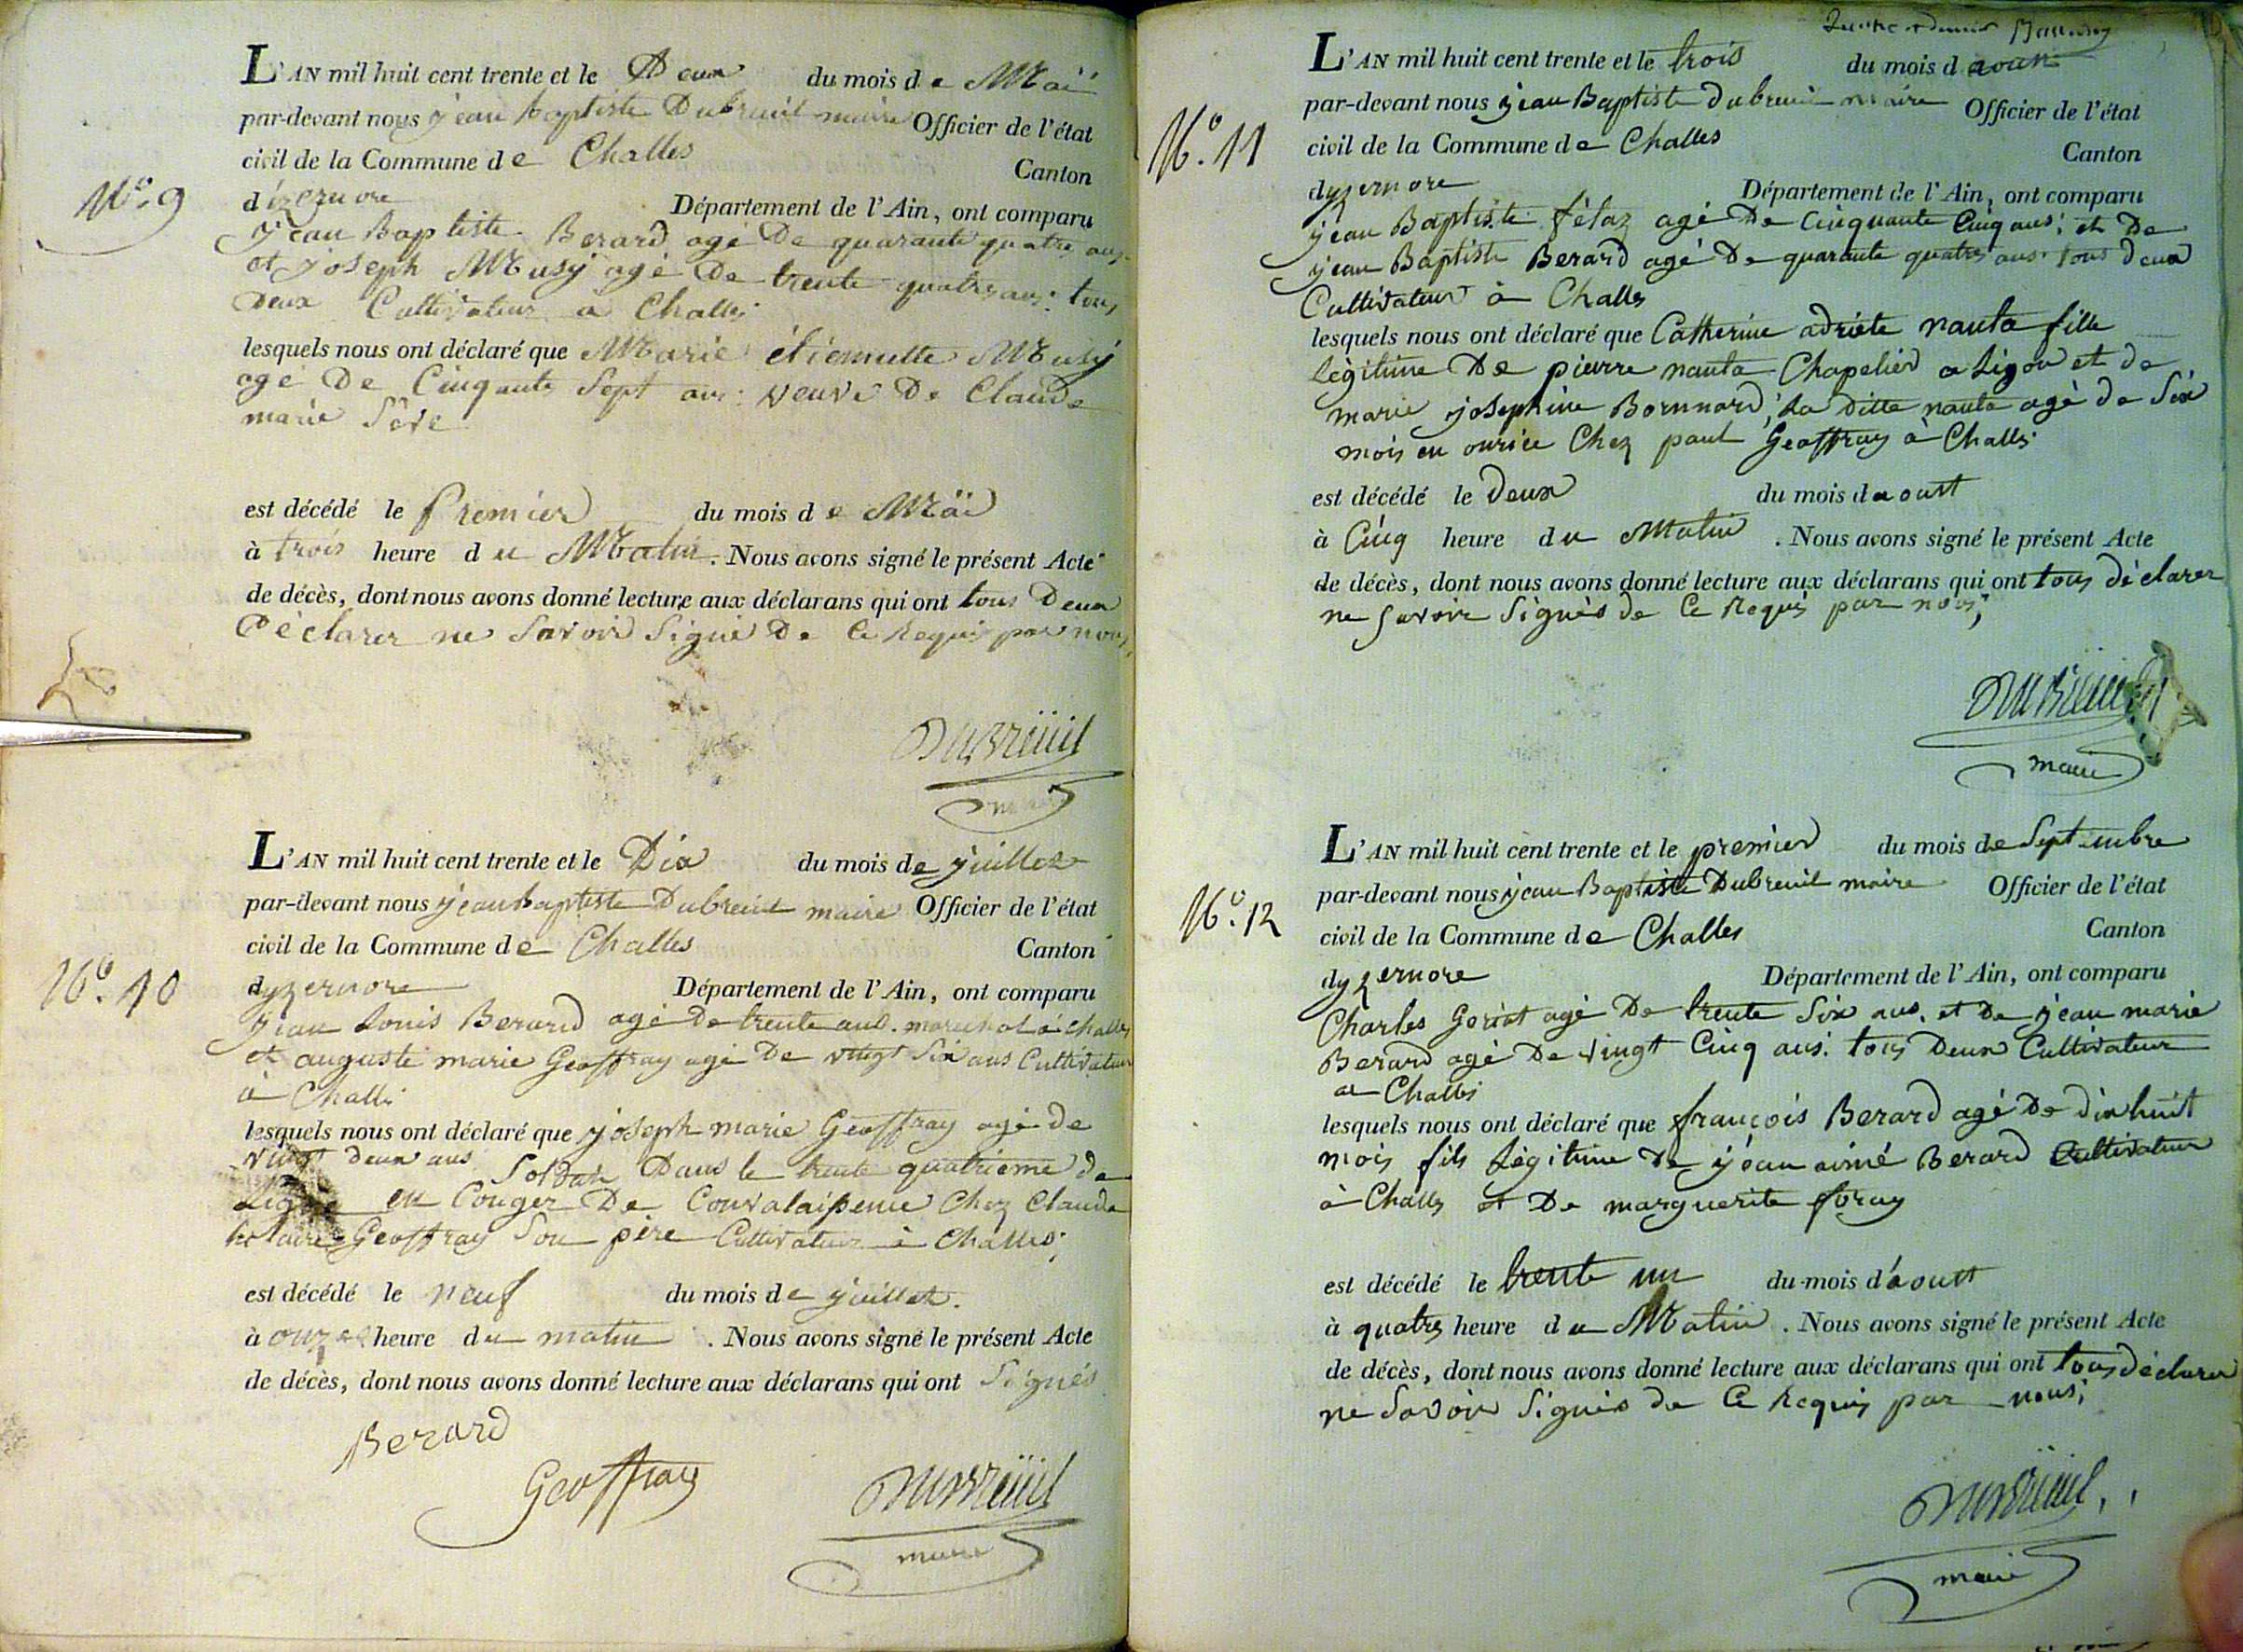 N.º 9
L'AN mil huit cent trente et le Deux du mois de Maï
par-devant nous jean baptiste Dubreuil maire Officier de l'état
civil de la Commune de Challes
Canton
dizernore Département de l'Ain, ont comparu
jean Baptiste Berard agé De quarante quatre ans
et joseph Musy agé De trente quatres ans: tous
Deux Cultivateur a Challes
lesquels nous ont déclaré que Marie étiennette Musy
agé De Cinquante Sept ans: veuve De Claude
marie
est décédé le Premier du mois de Maï
à trois heure du Matin. Nous avons signé le présent Acte
de décès, dont nous avons donné lecture aux déclarans qui ont tous Deux
Déclarer ne Savoir Signé De Ce Requis par nous,
DuBreüil
maire
N.º 10
L'AN mil huit cent trente et le Dix du mois de juillet
par-devant nous jean baptiste Dubreuil maire Officier de l'état
civil de la Commune de Challes Canton
dyzernore Département de l'Ain, ont comparu
jean Louis Berard agé De trente ans. marechal à Challes
et auguste marie Geoffray agé De vingt Six ans Cultivateur
à Challes
lesquels nous ont déclaré que joseph marie Geoffray agé de
vingt deux ans Soldat Dans le trente quatrieme de
Ligne en Conger De Convalaissence Chez Claude
Geoffray Son père Cultivateur à Challes;
est décédé le neuf du mois de juillet.
à onze heure du matin. Nous avons signé le présent Acte
de décès, dont nous avons donné lecture aux déclarans qui ont Signés
Berard
Geoffray
DuBreüil
maire
N.º 11
L'AN mil huit cent trente et le trois du mois d'aout
par-devant nous jean Baptiste Dubreuil maire Officier de l'état
civil de la Commune de Challes Canton
dyzernore Département de l'Ain, ont comparu
jean Baptiste félaz agé De Cinquante Cinq ans; et De
jean Baptiste Berard agé De quarante quatres ans. tous deux
Cultivateur à Challes
lesquels nous ont déclaré que Catherine adriete nanta fille
Légitime De pierre nanta Chapelier a Lyon et de
marie josephine Bornnard; La ditte nanta agé de Six
mois en ourice Chez paul Geoffray à Challes
est décédé le Deux du mois daoust
à Cinq heure du Matin. Nous avons signé le présent Acte
de décès, dont nous avons donné lecture aux déclarans qui ont tous déclarer
ne Savoir Signés de Ce Requis par nous;
DuBreüil
maire
N.º 12
L'AN mil huit cent trente et le premier du mois de Septembre
par-devant nous jean Baptiste Dubreuil maire Officier de l'état
civil de la Commune de Challes Canton
dyzernore Département de l'Ain, ont comparu
Charles Goriat agé De trente Six ans. et De jean marie
Berard agé De vingt Cinq ans. tous Deux Cultivateur
a Challes
lesquels nous ont déclaré que françois Berard agé De dix huit
mois fils Légitime De jean aimé Berard Cultivateur
à Challes et De marguerite foray
est décédé le trente un du mois d'aoust
à quatres heure du Matin. Nous avons signé le présent Acte
de décès, dont nous avons donné lecture aux déclarans qui ont tous déclarer
ne Savoir Signés de Ce Requis par nous;
DuBreüil
maire